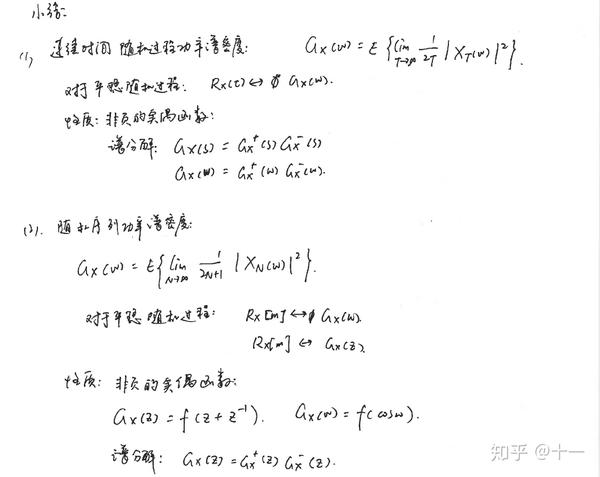 小结:
(1) 连续时间随机过程功率谱密度: Gx(ω) = E{lim T→∞ 1/2T |X_T(ω)|²}.
对于平稳随机过程: Rx(τ) ↔ Gx(ω).
性质: 非负的实偶函数:
谱分解: Gx(s) = Gx⁺(s) Gx⁻(s)
Gx(ω) = Gx⁺(ω) Gx⁻(ω).
(2). 随机序列功率谱密度:
Gx(ω) = E{lim N→∞ 1/2N+1 |X_N(ω)|²}.
对于平稳随机过程: Rx[m] ↔ Gx(ω).
Rx[m] ↔ Gx(z).
性质: 非负的实偶函数:
Gx(z) = f(z + z⁻¹). Gx(ω) = f(cosω).
谱分解: Gx(z) = Gx⁺(z) Gx⁻(z).
知乎 @十一